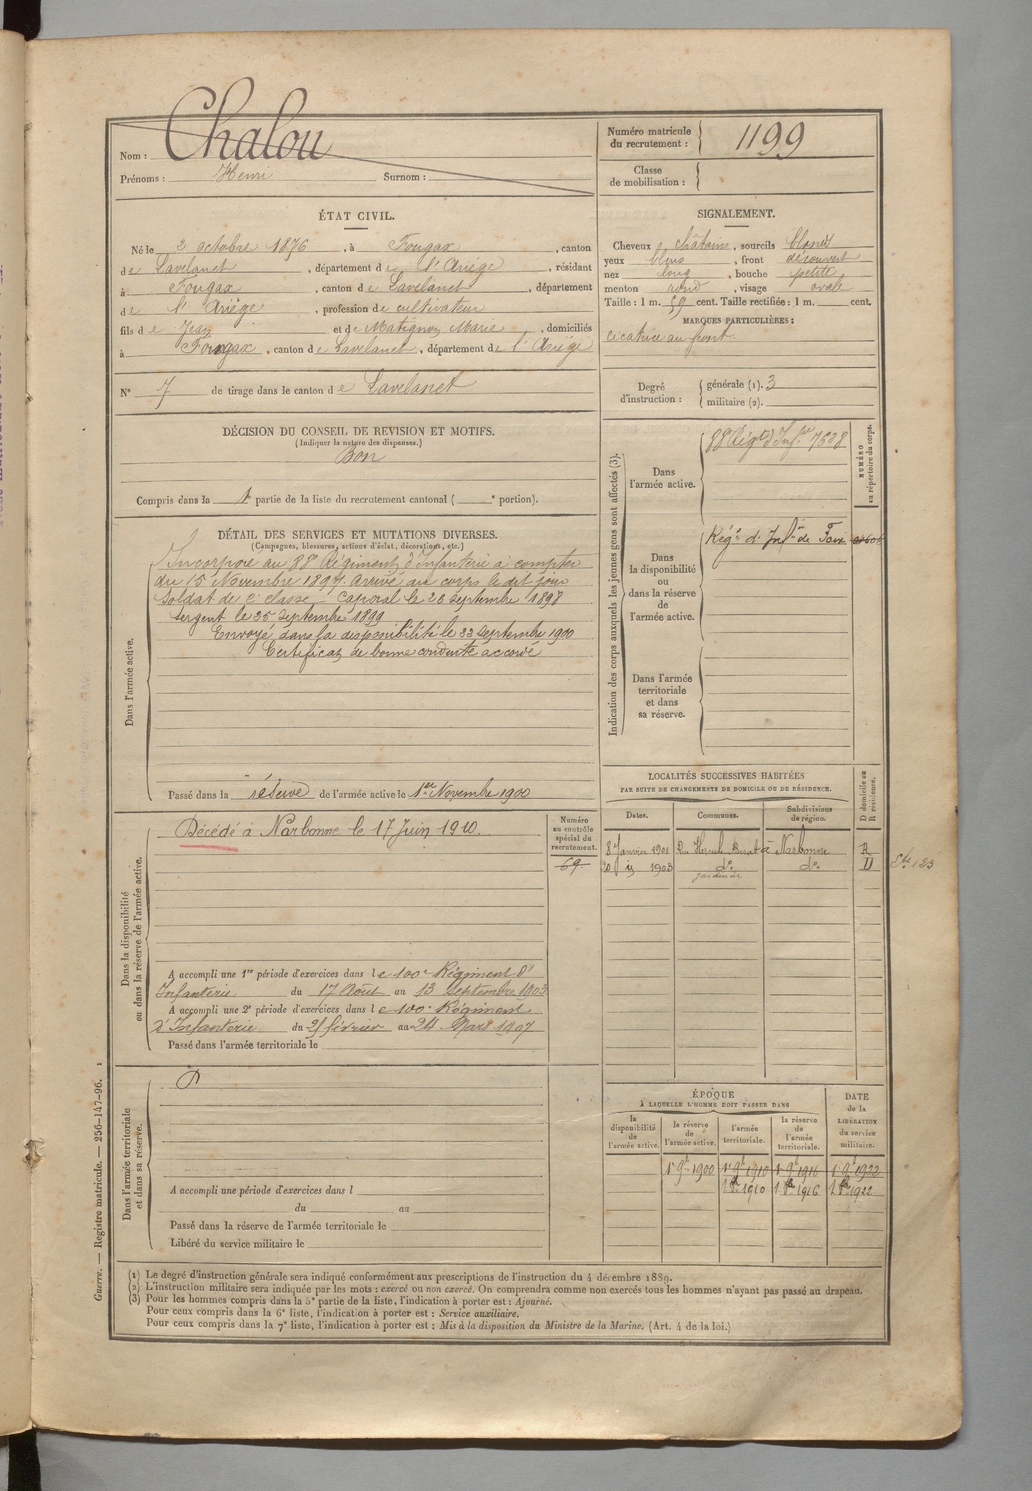 Nom : Chalou
Prénoms : Henri Surnom :
Numéro matricule du recrutement : 1199
Classe de mobilisation :
ÉTAT CIVIL.
Né le 2 octobre 1876, à Fougax, canton
de Lavelanet, département de l'Ariège, résidant
à Fougax, canton de Lavelanet, département
de l'Ariège, profession de cultivateur
fils de Jean et de Matignon Marie, domiciliés
à Fougax, canton de Lavelanet, département de l'Ariège
N° 7 de tirage dans le canton de Lavelanet
SIGNALEMENT.
Cheveux châtains, sourcils blonds
yeux bleus, front découvert
nez long, bouche petite
menton rond, visage ovale
Taille : 1 m. 59 cent. Taille rectifiée : 1 m. cent.
MARQUES PARTICULIÈRES :
cicatrice au front
Degré d'instruction : générale (1). 3
militaire (2).
DÉCISION DU CONSEIL DE REVISION ET MOTIFS.
(Indiquer la nature des dispenses.)
Bon
Compris dans la 1re partie de la liste du recrutement cantonal ( e portion).
DÉTAIL DES SERVICES ET MUTATIONS DIVERSES.
(Campagnes, blessures, actions d'éclat, décorations, etc.)
Dans l'armée active.
Incorporé au 88e Régiment d'Infanterie à compter
du 15 Novembre 1897. Arrivé au corps le dit jour
Soldat de 2e classe – Caporal le 26 Septembre 1898
Sergent le 25 Septembre 1899
Envoyé dans la disponibilité le 22 Septembre 1900
Certificat de bonne conduite accordé
Passé dans la réserve de l'armée active le 1er Novembre 1900
Indication des corps auxquels les jeunes gens sont affectés (3).
NUMÉRO au répertoire du corps.
Dans l'armée active.
88 Régt d'Infie 7628
Dans la disponibilité ou dans la réserve de l'armée active.
Régt d'Infie de Foix
Dans l'armée territoriale et dans sa réserve.
LOCALITÉS SUCCESSIVES HABITÉES
PAR SUITE DE CHANGEMENTS DE DOMICILE OU DE RÉSIDENCE.
D domicile ou R résidence.
Dates. Communes. Subdivisions de région.
8 Janvier 1901 Narbonne R
20 1903 do do D
jardinier
Dans la disponibilité ou dans la réserve de l'armée active.
Décédé à Narbonne le 17 Juin 1910.
Numéro au contrôle spécial du recrutement.
69
A accompli une 1re période d'exercices dans le 100e Régiment d'
Infanterie du 17 Août au 13 Septembre 1903
A accompli une 2e période d'exercices dans le 100e Régiment
d'Infanterie du 25 février au 24 Mars 1907
Passé dans l'armée territoriale le
Dans l'armée territoriale et dans sa réserve.
A accompli une période d'exercices dans l
du au
Passé dans la réserve de l'armée territoriale le
Libéré du service militaire le
ÉPOQUE
À LAQUELLE L'HOMME DOIT PASSER DANS
la disponibilité de l'armée active. la réserve de l'armée active. l'armée territoriale. la réserve de l'armée territoriale.
DATE de la LIBÉRATION du service militaire.
1r 9bre 1900 1r 9bre 1910 1r 9bre 1916 1r 9bre 1922
1910 1916 1922
(1) Le degré d'instruction générale sera indiqué conformément aux prescriptions de l'instruction du 4 décembre 1889.
(2) L'instruction militaire sera indiquée par les mots : exercé ou non exercé. On comprendra comme non exercés tous les hommes n'ayant pas passé au drapeau.
(3) Pour les hommes compris dans la 5e partie de la liste, l'indication à porter est : Ajourné.
Pour ceux compris dans la 6e liste, l'indication à porter est : Service auxiliaire.
Pour ceux compris dans la 7e liste, l'indication à porter est : Mis à la disposition du Ministre de la Marine. (Art. 4 de la loi.)
Guerre. — Registre matricule. — 256-147-96.